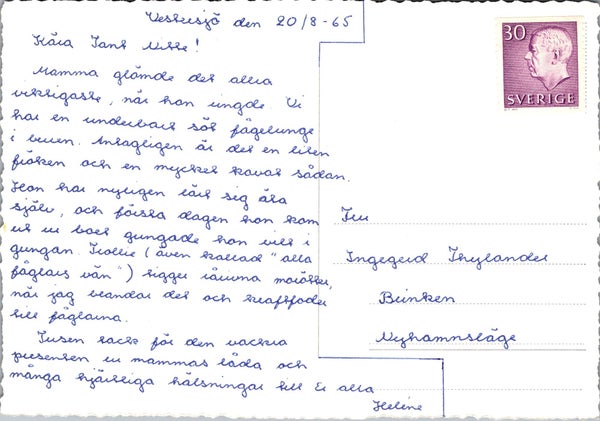 Vesslesjö den 20/8-65
Kära Tant Nisse!
Mamma glömde det allra
viktigaste, när hon ringde. Vi
har en underbart söt fågelunge
i buren. Antagligen är det en liten
fröken och en mycket kavat sådan.
Hon har nyligen lärt sig äta
själv, och första dagen hon kom
ut ur boet gungade hon vilt i
gungan. Trollie (även kallad "alla
fåglars vän") tigger råriven morötter,
när jag blandar det och kraftfoder
till fåglarna.
Tusen tack för den vackra
presenten ur mammas låda och
många hjärtliga hälsningar till Er alla
Helene
30
SVERIGE
Fru
Ingegerd Thylander
Brinken
Nyhamnsläge